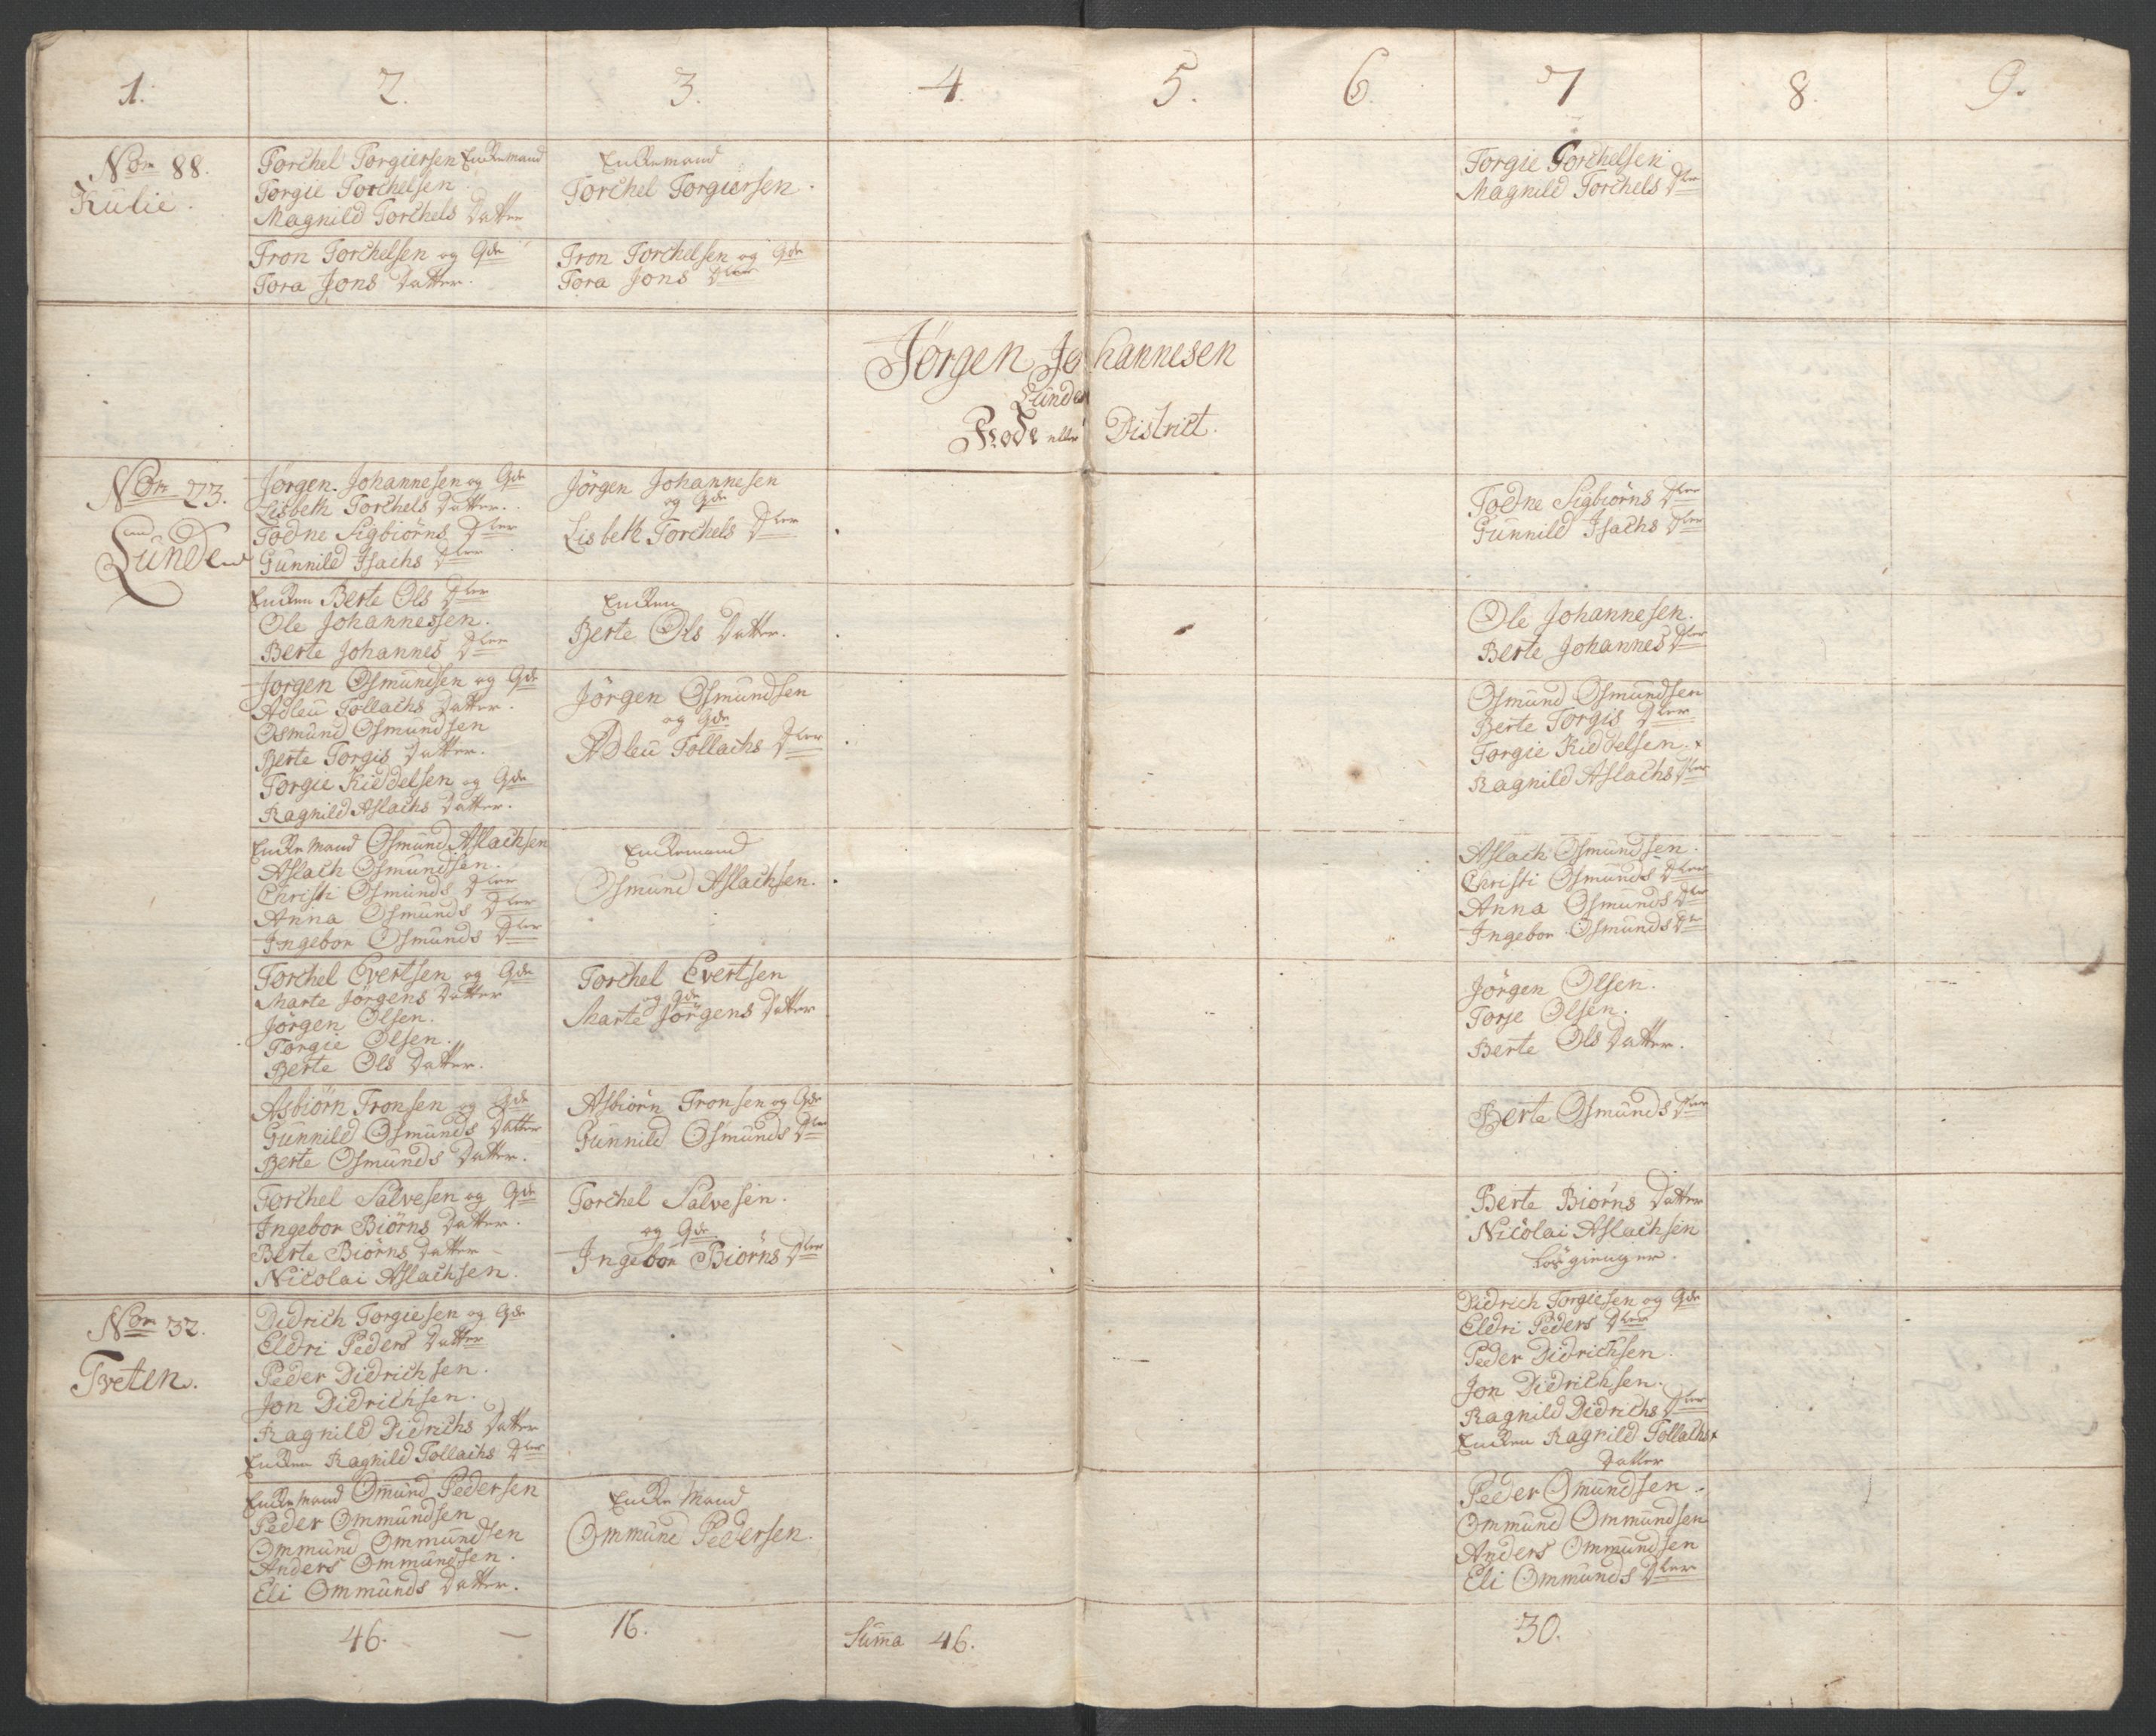 1. 2. 3. 4. 5. 6. 7 8. 9.
Nor 88.
Kulie.
Torchel Torgiersen Enkemand
Torgie Torchelsen
Magnild Torchels Datter
Enkemand
Torchel Torgiersen.
Torgie Torchelsen
Magnild Torchels Dter
Tron Torchelsen og Qde
Tora Jons Datter.
Tron Torchelsen og Qde
Tora Jons Dter
Jørgen Johannesen
Lunde
Rode eller District.
Nor 23.
Lunde
Jørgen Johannesen og Qde
Lisbeth Torchels Datter.
Todne Sigbiørns Dter
Gunnild Isachs Dter
Jørgen Johannesen
og Qde
Lisbeth Torchels Dter
Todne Sigbiørns Dter
Gunnild Isachs Dter
Enken Berte Ols Dter
Ole Johannessen.
Berte Johannes Dter
Enken
Berte Ols Datter.
Ole Johannesen.
Berte Johannes Dter
Jørgen Osmundsen og Qde
Adleu Tollachs Datter.
Osmund Osmundsen
Berte Torgis Datter.
Torgie Kiddelsen og Qde
Ragnild Aslachs Datter.
Jørgen Osmundsen
og Qde
Adleu Tollachs Dter
Osmund Osmundsen
Berte Torgis Dter
Torgie Kiddelsen.
Ragnild Aslachs Dter
Enke Mand Osmund Aslachsen
Aslach Osmundsen.
Christi Osmunds Dter
Anna Osmunds Dter
Ingebor Osmunds Dter
Enkemand
Osmund Aslachsen.
Aslach Osmundsen.
Christi Osmunds Dter
Anna Osmunds Dter
Ingebor Osmunds Dter
Torchel Evertsen og Qde
Marte Jørgens Datter
Jørgen Olsen.
Torgie Olsen.
Berte Ols Datter.
Torchel Evertsen
og Qde
Marte Jørgens Datter
Jørgen Olsen.
Torje Olsen.
Berte Ols Datter.
Asbiørn Tronsen og Qde
Gunnild Osmunds Datter
Berte Osmunds Datter.
Asbiørn Tronsen og Qde
Gunnild Osmunds Dter
Berte Osmunds Dter
Torchel Salvesen og Qde
Ingebor Biørns Datter.
Berte Biørns Datter
Nicolai Aslachsen.
Torchel Salvesen.
og Qde
Ingebor Biørns Dter
Berte Biørns Datter
Nicolai Aslachsen
Løsgienger.
Nor 32.
Tveten.
Didrich Torgiesen og Qde
Eldri Peders Datter
Peder Didrichsen.
Jon Didrichsen.
Ragnild Didrichs Datter
Enken Ragnild Tollachs Dter
Didrich Torgiesen og Qde
Eldri Peders Dter
Peder Didrichsen.
Jon Didrichsen.
Ragnild Didrichs Dter
Enken Ragnild Tollachs
Datter
Enke Mand Omund Pedersen
Peder Ommundsen
Ommund Ommundsen
Anders Ommundsen.
Eli Ommunds Datter.
Enke Mand
Ommund Pedersen.
Peder Omundsen.
Ommund Ommundsen
Anders Ommundsen
Eli Ommunds Dter
46. 16. Summa 46. 30.